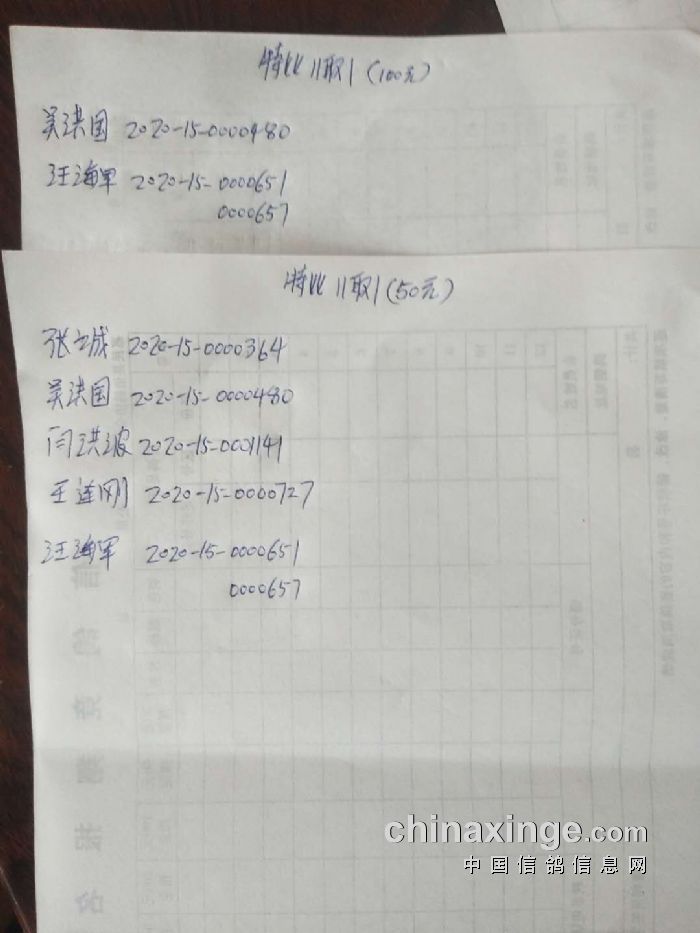 特比11取1(100元)
吴洪国 2020-15-0000480
汪海军 2020-15-0000651
0000657
特比11取1(50元)
张立成 2020-15-0000364
吴洪国 2020-15-0000480
闫洪波 2020-15-0001141
王连刚 2020-15-0000727
汪海军 2020-15-0000651
0000657
chinaxinge.com
中国信鸽信息网